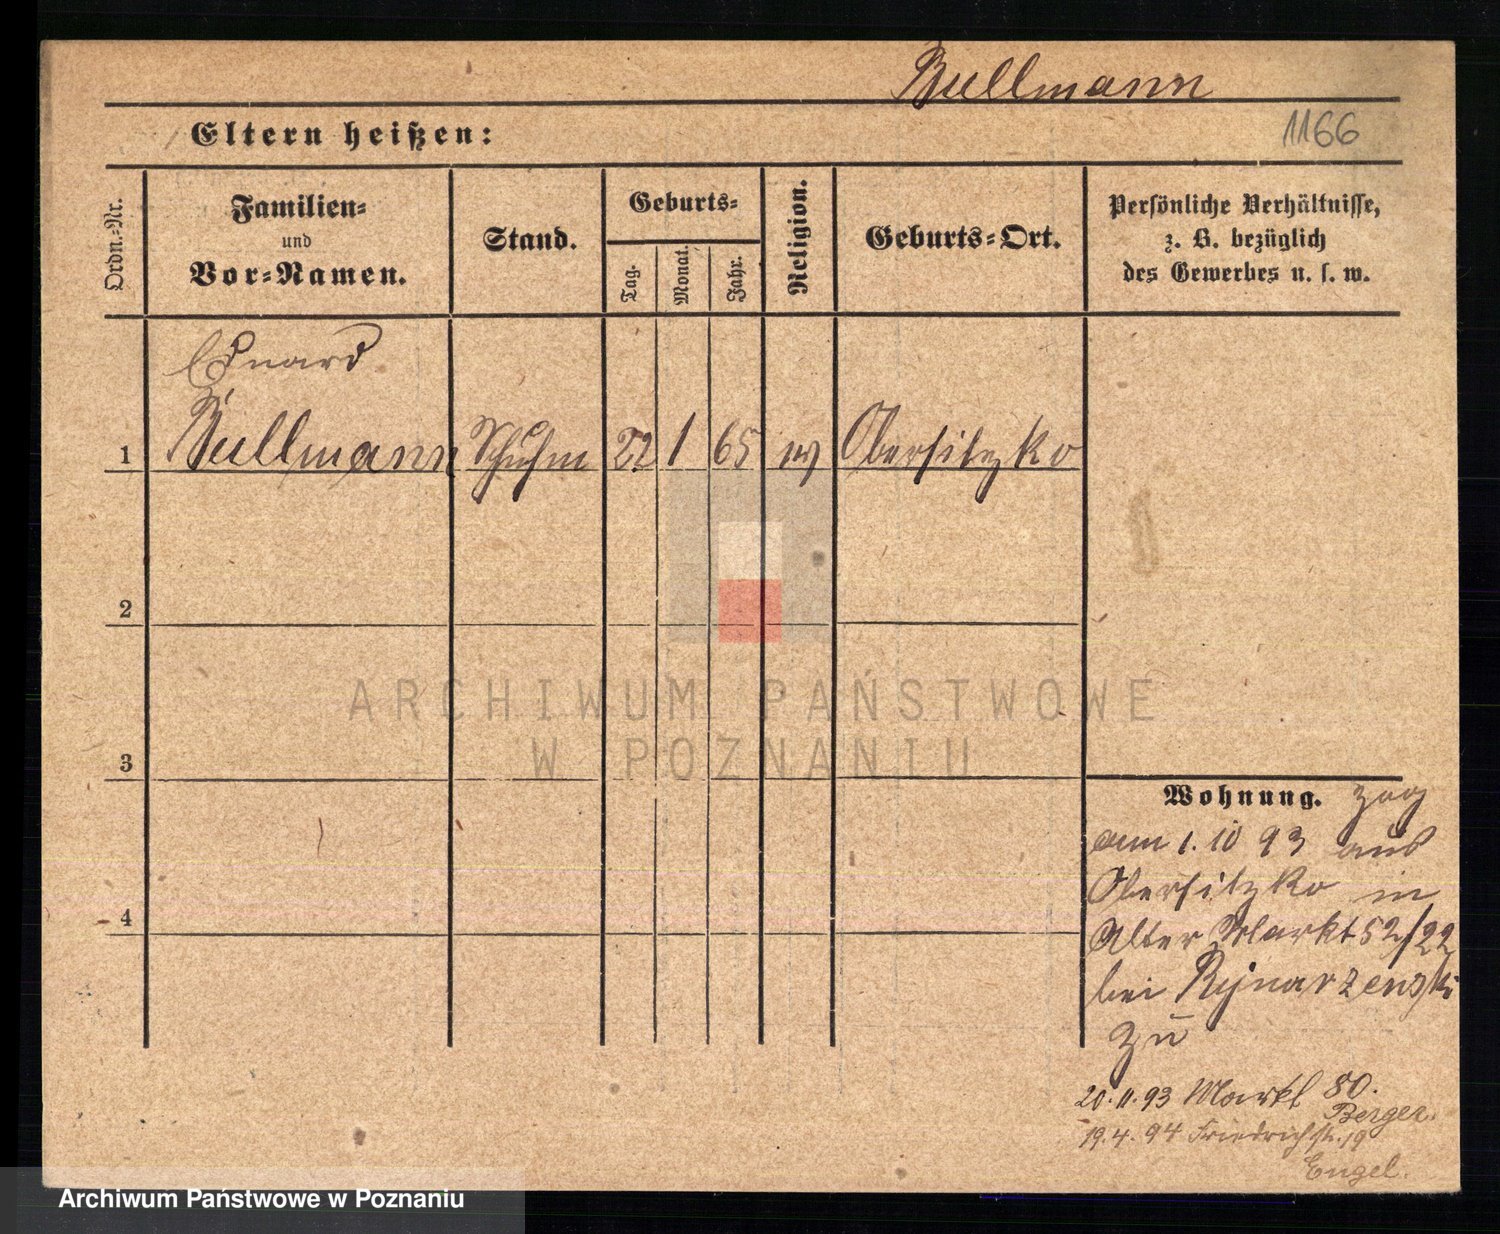 Bullmann
1166
Eltern heißen:
Ordn.-Nr.
Familien-
und
Vor-Namen.
Stand.
Geburts-
Tag.
Monat.
Jahr.
Religion.
Geburts-Ort.
Persönliche Verhältnisse,
z. B. bezüglich
des Gewerbes u. s. w.
Eduard
1 Bullmann Schuhm 22 1 65 Obersitzko
2
3
4
Wohnung. zog
am 1. 10 93 aus
Obersitzko in
Alter Markt 52/22
bei Rynarzewski
zu
20. 11. 93 Markt 80.
Berger.
19. 4. 94 Friedrichstr. 19
Engel.
ARCHIWUM PAŃSTWOWE
W POZNANIU
Archiwum Państwowe w Poznaniu